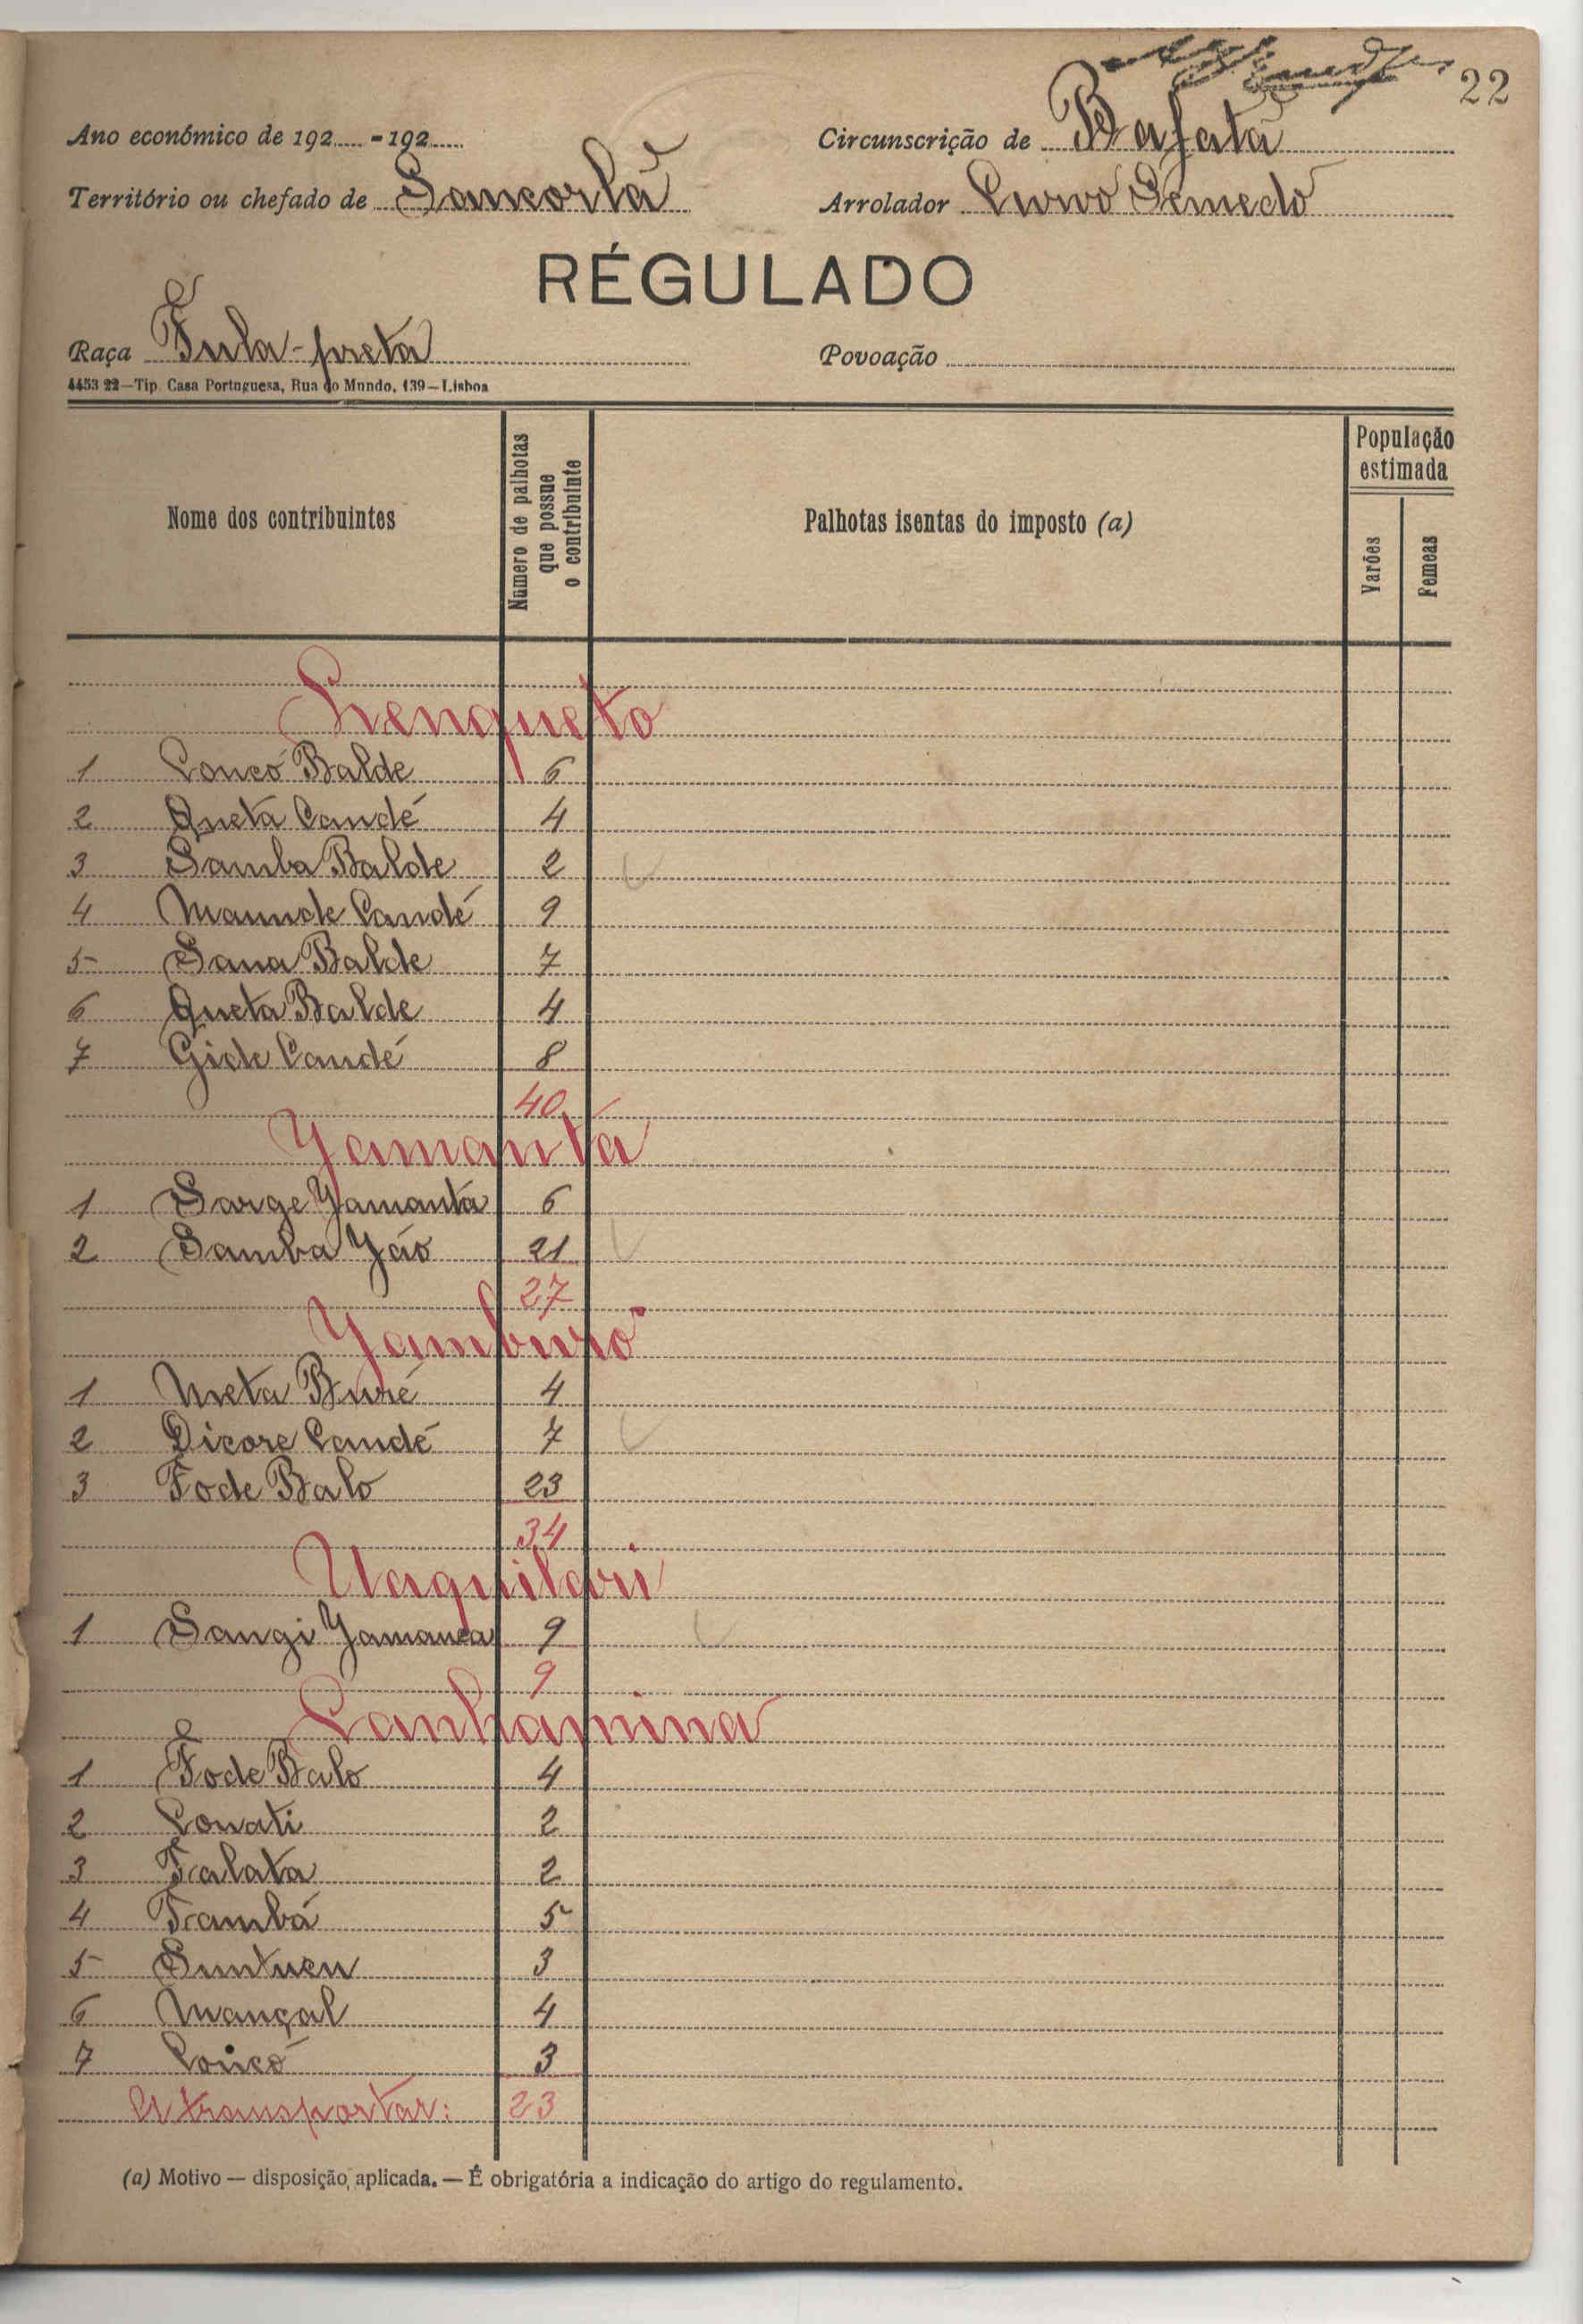 22
Ano económico de 192..... - 192.....
Circunscrição de Bafatá
Território ou chefado de Sancorlá
Arrolador Lurvo Semedo
RÉGULADO
Raça Fula-preta
Povoação
4453 22—Tip. Casa Portuguesa, Rua do Mundo, 139—Lisboa
Nome dos contribuintes
Número de palhotas que possue o contribuinte
Palhotas isentas do imposto (a)
População estimada
Varões
Femeas
Lenqueto
1 Loncó Balde 6
2 Queta Candé 4
3 Samba Balde 2
4 Maunde Candé 9
5 Sana Balde 7
6 Queta Balde 4
7 Gide Candé 8
40
Yamanta
1 Sarge Yamanta 6
2 Samba Yáo 21
27
Yamburo
1 Meta Buré 4
2 Dicore Candé 7
3 Fode Balo 23
34
Uaquilari
1 Sangi Yamanca 9
9
Canhámina
1 Fode Balo 4
2 Conati 2
3 Talata 2
4 Tambá 5
5 Suntuen 3
6 Mançal 4
7 Loncó 3
A transportar: 23
(a) Motivo — disposição aplicada. — É obrigatória a indicação do artigo do regulamento.